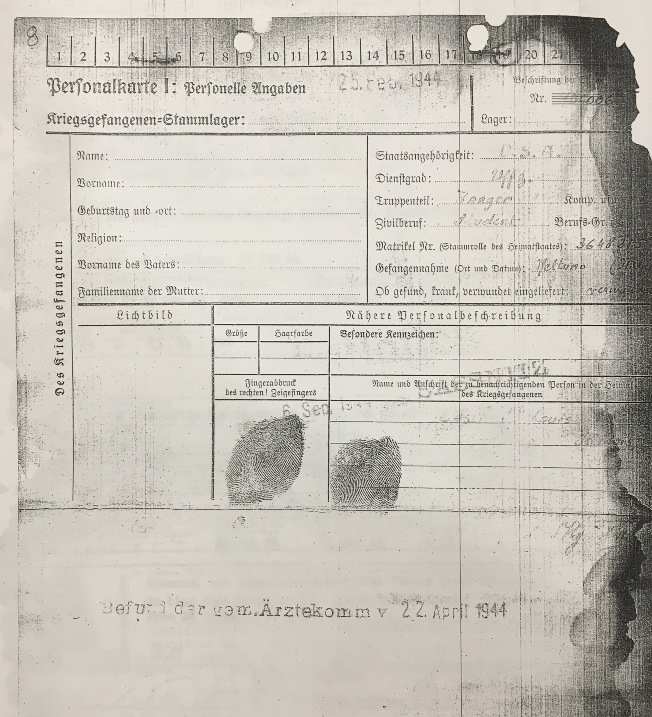 8
1 2 3 4 5 6 7 8 9 10 11 12 13 14 15 16 17 18 19 20 21
Personalkarte I: Personelle Angaben
25. Feb. 1944
Beschriftung der
Nr.
Kriegsgefangenen-Stammlager:
Lager:
Des Kriegsgefangenen
Name:
Vorname:
Geburtstag und -ort:
Religion:
Vorname des Vaters:
Familienname der Mutter:
Staatsangehörigkeit: U.S.A.
Dienstgrad: Uffz.
Truppenteil: Ranger Komp.
Zivilberuf: Student Berufs-Gr.
Matrikel Nr. (Stammrolle des Heimatstaates):
Gefangennahme (Ort und Datum): Nettuno
Ob gesund, krank, verwundet eingeliefert:
Lichtbild
Nähere Personalbeschreibung
Größe
Haarfarbe
Besondere Kennzeichen:
Fingerabdruck
des rechten! Zeigefingers
Name und Anschrift der zu benachrichtigenden Person in der Heimat
des Kriegsgefangenen
6. Sep. 1944
Befund der gem. Ärztekomm v 22. April 1944